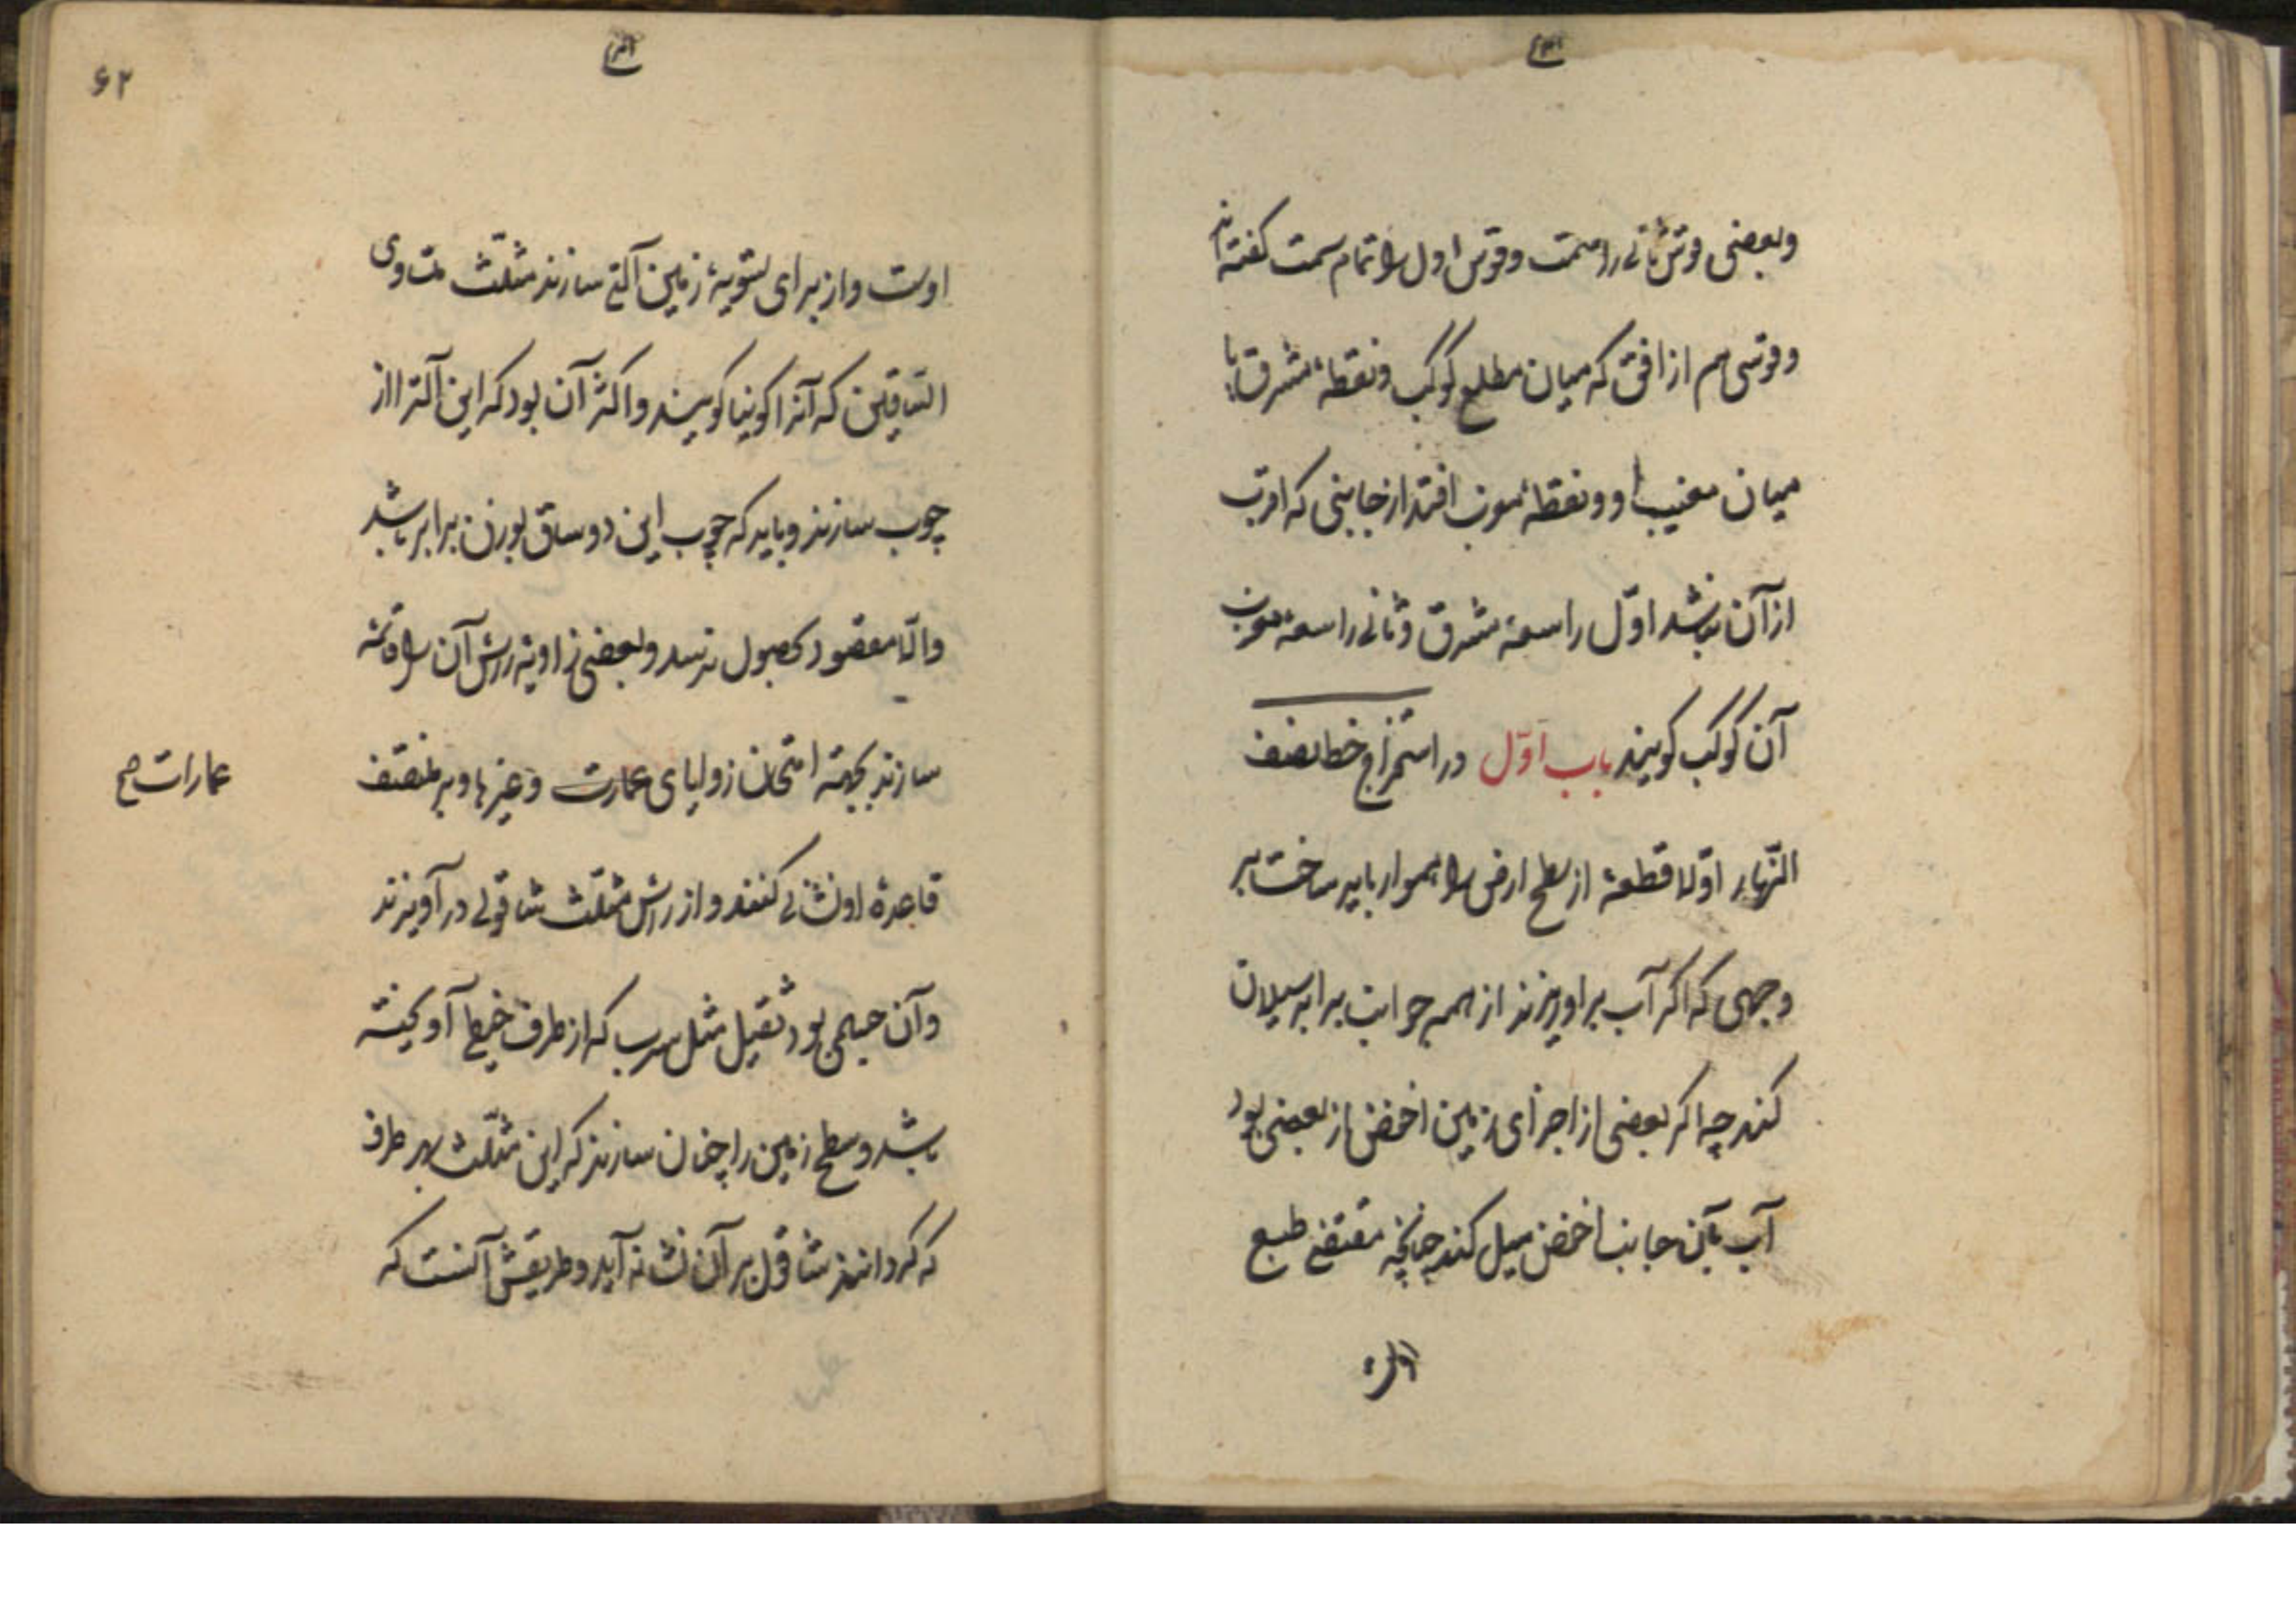 وبعضی قوس ثانی را سمت وقوس اول را تمام سمت گفته اند
وقوسی هم از افق که میان مطلع کوکب ونقطهٔ مشرق یا
میان مغیب او ونقطهٔ مغرب افتد از جانبی که اقرب
از آن نباشد اوّل را سعهٔ مشرق وثانی را سعهٔ مغرب
آن کوکب گویند باب اوّل در استخراج خط نصف
النّهار اوّلا قطعهٔ از سطح ارض را هموار باید ساخت بر
وجهی که اگر آب بر او ریزند از همه جوانب برابر سیلان
کند چه اگر بعضی از اجزای زمین اخفض از بعضی بود
آب بآن جانب اخفض میل کند چنانچه مقتضی طبع
۶۲
اوست واز برای تسویهٔ زمین آلتی سازند مثلّث متساوی
الساقین که آنرا کونیا گویند واکثر آن بود که این آلت را از
چوب سازند وباید که چوب این دو ساق بوزن برابر باشد
والّا مقصود بحصول نرسد وبعضی زاویهٔ رأس آن را قائمه
سازند بجهته امتحان زوایای عمارت وغیرها وبر منتصف
عمارات صح
قاعدهٔ او نشانی کنند واز رأس مثلّث شاقولی در آویزند
وآن جسمی بود ثقیل مثل سرب که از طرف خیط آویخته
باشد وسطح زمین را چنان سازند که این مثلّث بهر طرف
که گردانند شاقول بر آن نشانه آید وطریقش آنست که